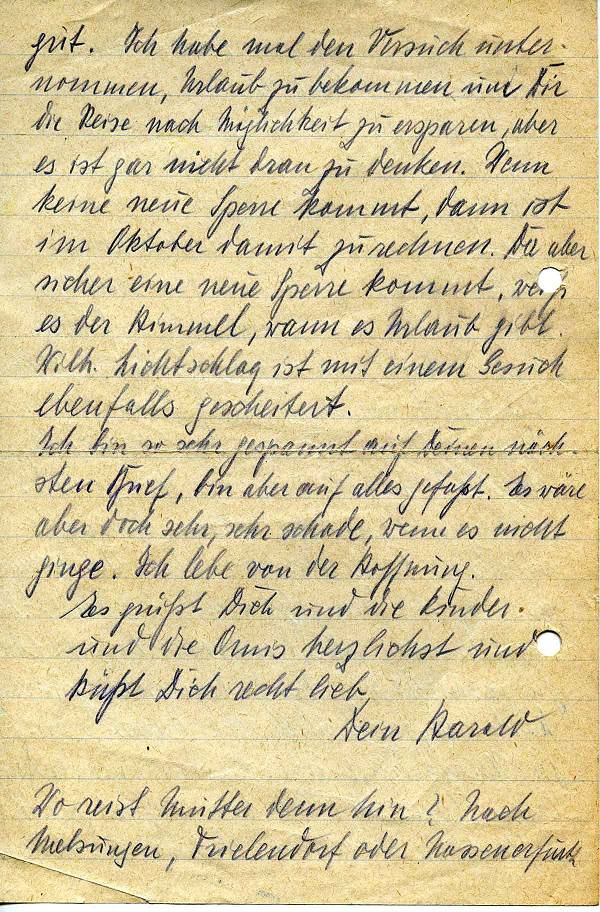 gut. Ich habe mal den Versuch unter-
nommen, Urlaub zu bekommen um Dir
die Reise nach Möglichkeit zu ersparen, aber
es ist gar nicht dran zu denken. Wenn
keine neue Sperre kommt, dann ist
im Oktober damit zu rechnen. Da aber
sicher eine neue Sperre kommt, weiß
es der Himmel, wann es Urlaub gibt.
Wilh. Lichtschlag ist mit einem Gesuch
ebenfalls gescheitert.
Ich bin so sehr gespannt auf Deinen näch-
sten Brief, bin aber auf alles gefaßt. Es wäre
aber doch sehr, sehr schade, wenn es nicht
ginge. Ich lebe von der Hoffnung.
Es grüßt Dich und die Kinder
und die Omis herzlichst und
küßt Dich recht lieb
Dein Harald
Wo reist Mutter denn hin? Nach
Melsungen, Trielendorf oder Nassenerfurth